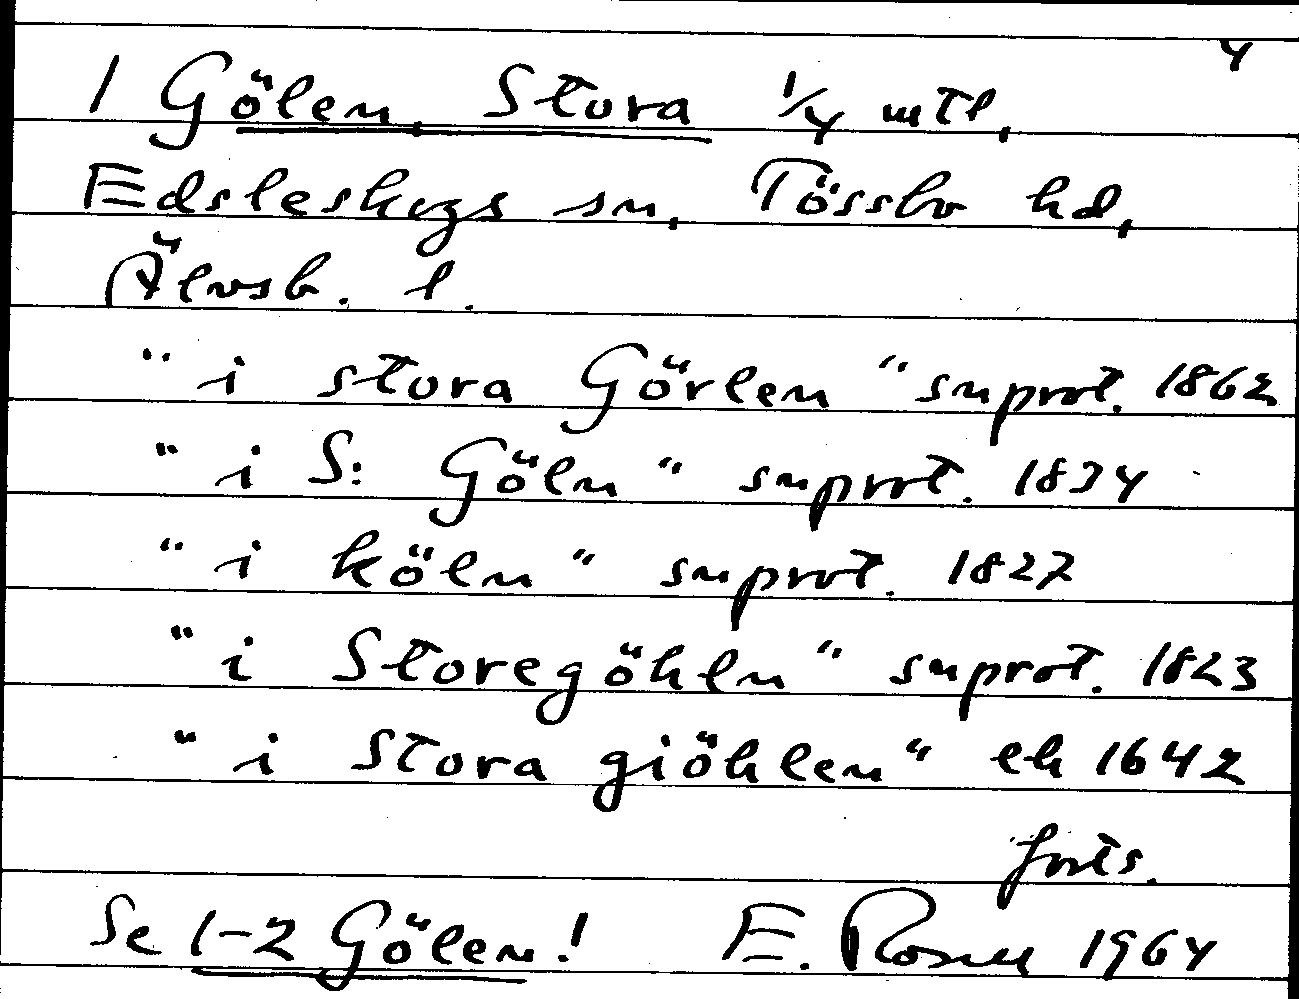 4
1 Gölen, Stora 1/4 mtl,
Edsleskogs sn, Tössbo hd,
Älvsb. l.
"i stora Görlen" snprot. 1862
"i S: Göln" snprot. 1834
"i köln" snprot. 1827
"i Storegöhln" snprot. 1823
"i Stora giöhlen" ek 1642
forts.
Se 1-2 Gölen! E. Rosell 1964